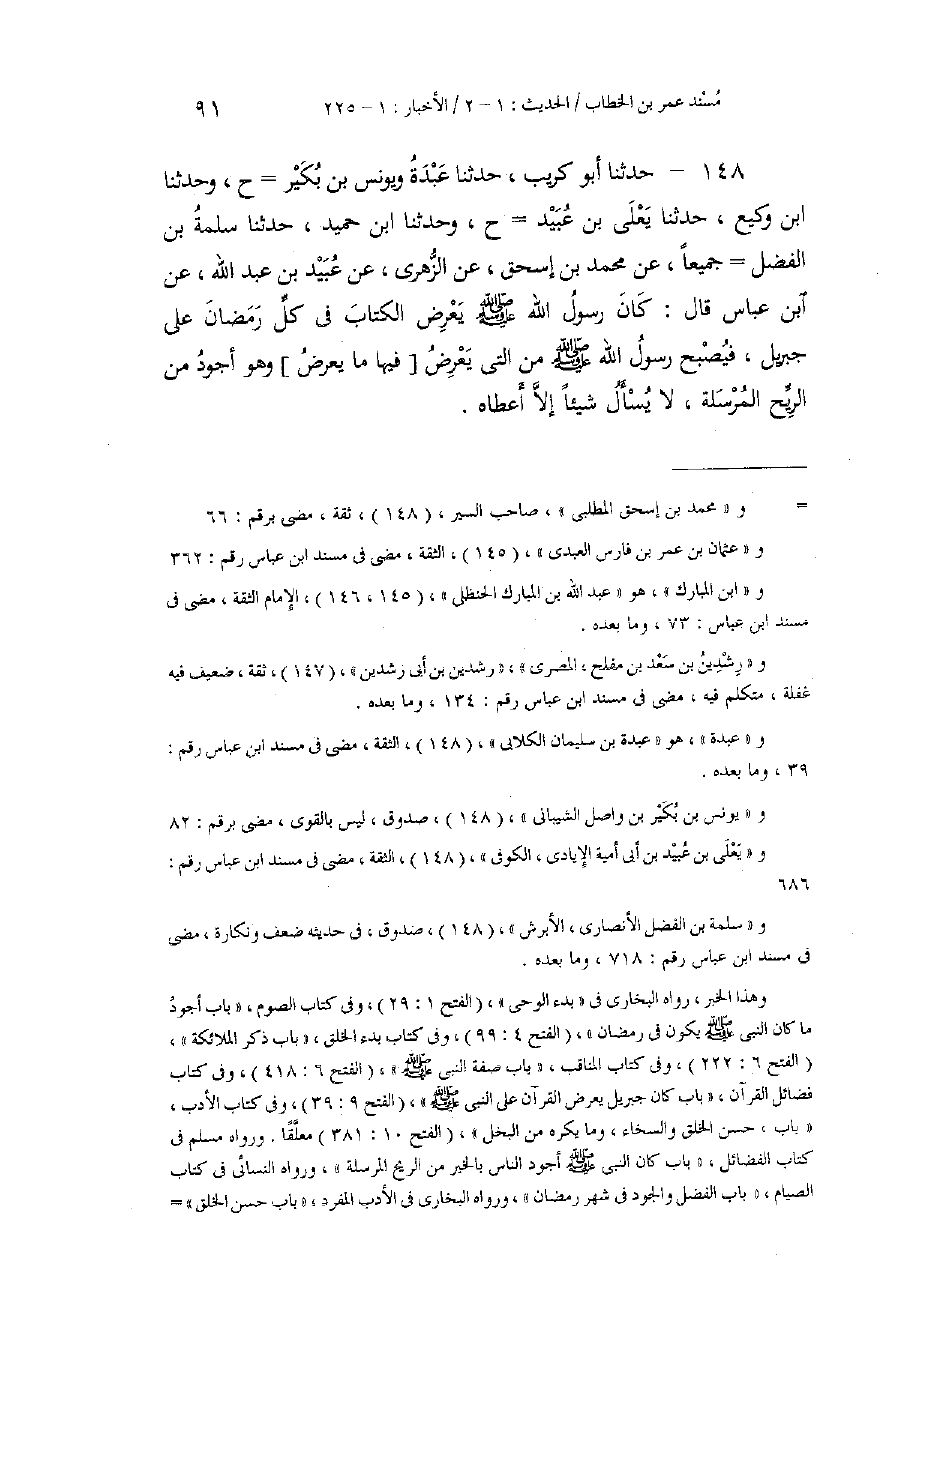 مُسْند عمر بن الخطاب / الحديث : ١ – ٢ / الأخبار : ١ – ٢٢٥ ٩١
١٤٨ – حدثنا أبو كريب ، حدثنا عَبْدَةُ ويونس بن بُكَيْر = ح ، وحدثنا
ابن وكيع ، حدثنا يَعْلَى بن عُبَيْد = ح ، وحدثنا ابن حميد ، حدثنا سلمةُ بن
الفضل = جميعاً ، عن محمد بن إسحق ، عن الزُّهرى ، عن عُبَيْد بن عبد الله ، عن
آبن عباس قال : كَانَ رسولُ الله ﷺ يَعْرِض الكتابَ فى كلِّ رَمَضانَ على
جبريل ، فيُصْبح رسولُ الله ﷺ من التى يَعْرِضُ [ فيها ما يعرضُ ] وهو أجودُ من
الرِّيح المُرْسَلة ، لا يُسْأَلُ شيئاً إلاَّ أَعطاه .
= و « محمد بن إسحق المطلبى » ، صاحب السير ، ( ١٤٨ ) ، ثقة ، مضى برقم : ٦٦
و « عثمان بن عمر بن فارس العبدى » ، ( ١٤٥ ) ، الثقة ، مضى فى مسند ابن عباس رقم : ٣٦٢
و « ابن المبارك » ، هو « عبد الله بن المبارك الحنظلى » ، ( ١٤٥ ، ١٤٦ ) ، الإمام الثقة ، مضى فى
مسند ابن عباس : ٧٣ ، وما بعده .
و « رِشْدِينُ بن سَعْد بن مفلح ، المصرى » ، « رشدين بن أبى رشدين » ، ( ١٤٧ ) ، ثقة ، ضعيف فيه
غفلة ، متكلم فيه ، مضى فى مسند ابن عباس رقم : ١٣٤ ، وما بعده .
و « عبدة » ، هو « عبدة بن سليمان الكلابى » ، ( ١٤٨ ) ، الثقة ، مضى فى مسند ابن عباس رقم :
٣٩ ، وما بعده .
و « يونس بن بُكَيْر بن واصل الشيبانى » ، ( ١٤٨ ) ، صدوق ، ليس بالقوى ، مضى برقم : ٨٢
و « يَعْلَى بن عُبيْد بن أبى أمية الإيادى ، الكوفى » ، ( ١٤٨ ) ، الثقة ، مضى فى مسند ابن عباس رقم :
٦٨٦
و « سلمة بن الفضل الأنصارى ، الأبرش » ، ( ١٤٨ ) ، صدوق ، فى حديثه ضعف ونكارة ، مضى
فى مسند ابن عباس رقم : ٧١٨ ، وما بعده .
وهذا الخبر ، رواه البخارى فى « بدء الوحى » ، ( الفتح ١ : ٢٩ ) ، وفى كتاب الصوم ، « باب أجودُ
ما كان النبى ﷺ يكون فى رمضان » ، ( الفتح ٤ : ٩٩ ) ، وفى كتاب بدء الخلق ، « باب ذكر الملائكة » ،
( الفتح ٦ : ٢٢٢ ) ، وفى كتاب المناقب ، « باب صفة النبى ﷺ » ، ( الفتح ٦ : ٤١٨ ) ، وفى كتاب
فضائل القرآن ، « باب كان جبريل يعرض القرآن على النبى ﷺ » ، ( الفتح ٩ : ٣٩ ) ، وفى كتاب الأدب ،
« باب ، حسن الخلق والسخاء ، وما يكره من البخل » ، ( الفتح ١٠ : ٣٨١ ) معلَّقًا . ورواه مسلم فى
كتاب الفضائل ، « باب كان النبى ﷺ أجود الناس بالخير من الريح المرسلة » ، ورواه النسائى فى كتاب
الصيام ، « باب الفضل والجود فى شهر رمضان » ، ورواه البخارى فى الأدب المفرد ، « باب حسن الخلق » =